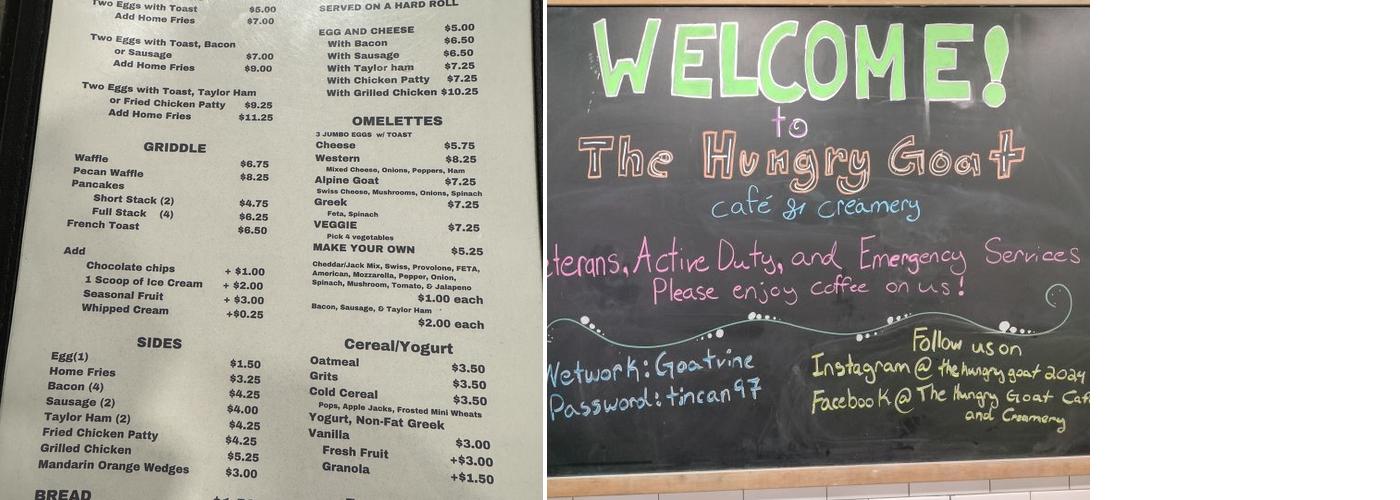 Two Eggs with Toast $5.00
Add Home Fries $7.00
Two Eggs with Toast, Bacon
or Sausage $7.00
Add Home Fries $9.00
Two Eggs with Toast, Taylor Ham
or Fried Chicken Patty $9.25
Add Home Fries $11.25
GRIDDLE
Waffle $6.75
Pecan Waffle $8.25
Pancakes
Short Stack (2) $4.75
Full Stack (4) $6.25
French Toast $6.50
Add
Chocolate chips + $1.00
1 Scoop of Ice Cream + $2.00
Seasonal Fruit + $3.00
Whipped Cream +$0.25
SIDES
Egg(1) $1.50
Home Fries $3.25
Bacon (4) $4.25
Sausage (2) $4.00
Taylor Ham (2) $4.25
Fried Chicken Patty $4.25
Grilled Chicken $5.25
Mandarin Orange Wedges $3.00
BREAD
SERVED ON A HARD ROLL
EGG AND CHEESE $5.00
With Bacon $6.50
With Sausage $6.50
With Taylor ham $7.25
With Chicken Patty $7.25
With Grilled Chicken $10.25
OMELETTES
3 JUMBO EGGS w/ TOAST
Cheese $5.75
Western $8.25
Mixed Cheese, Onions, Peppers, Ham
Alpine Goat $7.25
Swiss Cheese, Mushrooms, Onions, Spinach
Greek $7.25
Feta, Spinach
VEGGIE $7.25
Pick 4 vegetables
MAKE YOUR OWN $5.25
Cheddar/Jack Mix, Swiss, Provolone, FETA,
American, Mozzarella, Pepper, Onion,
Spinach, Mushroom, Tomato, & Jalapeno
$1.00 each
Bacon, Sausage, & Taylor Ham
$2.00 each
Cereal/Yogurt
Oatmeal $3.50
Grits $3.50
Cold Cereal $3.50
Pops, Apple Jacks, Frosted Mini Wheats
Yogurt, Non-Fat Greek
Vanilla $3.00
Fresh Fruit +$3.00
Granola +$1.50
WELCOME!
to
The Hungry Goat
café & creamery
terans, Active Duty, and Emergency Services
Please enjoy coffee on us!
Network: Goatvine
Password: tincan97
Follow us on
Instagram @ thehungrygoat2024
Facebook @ The Hungry Goat Caf
and Creamery